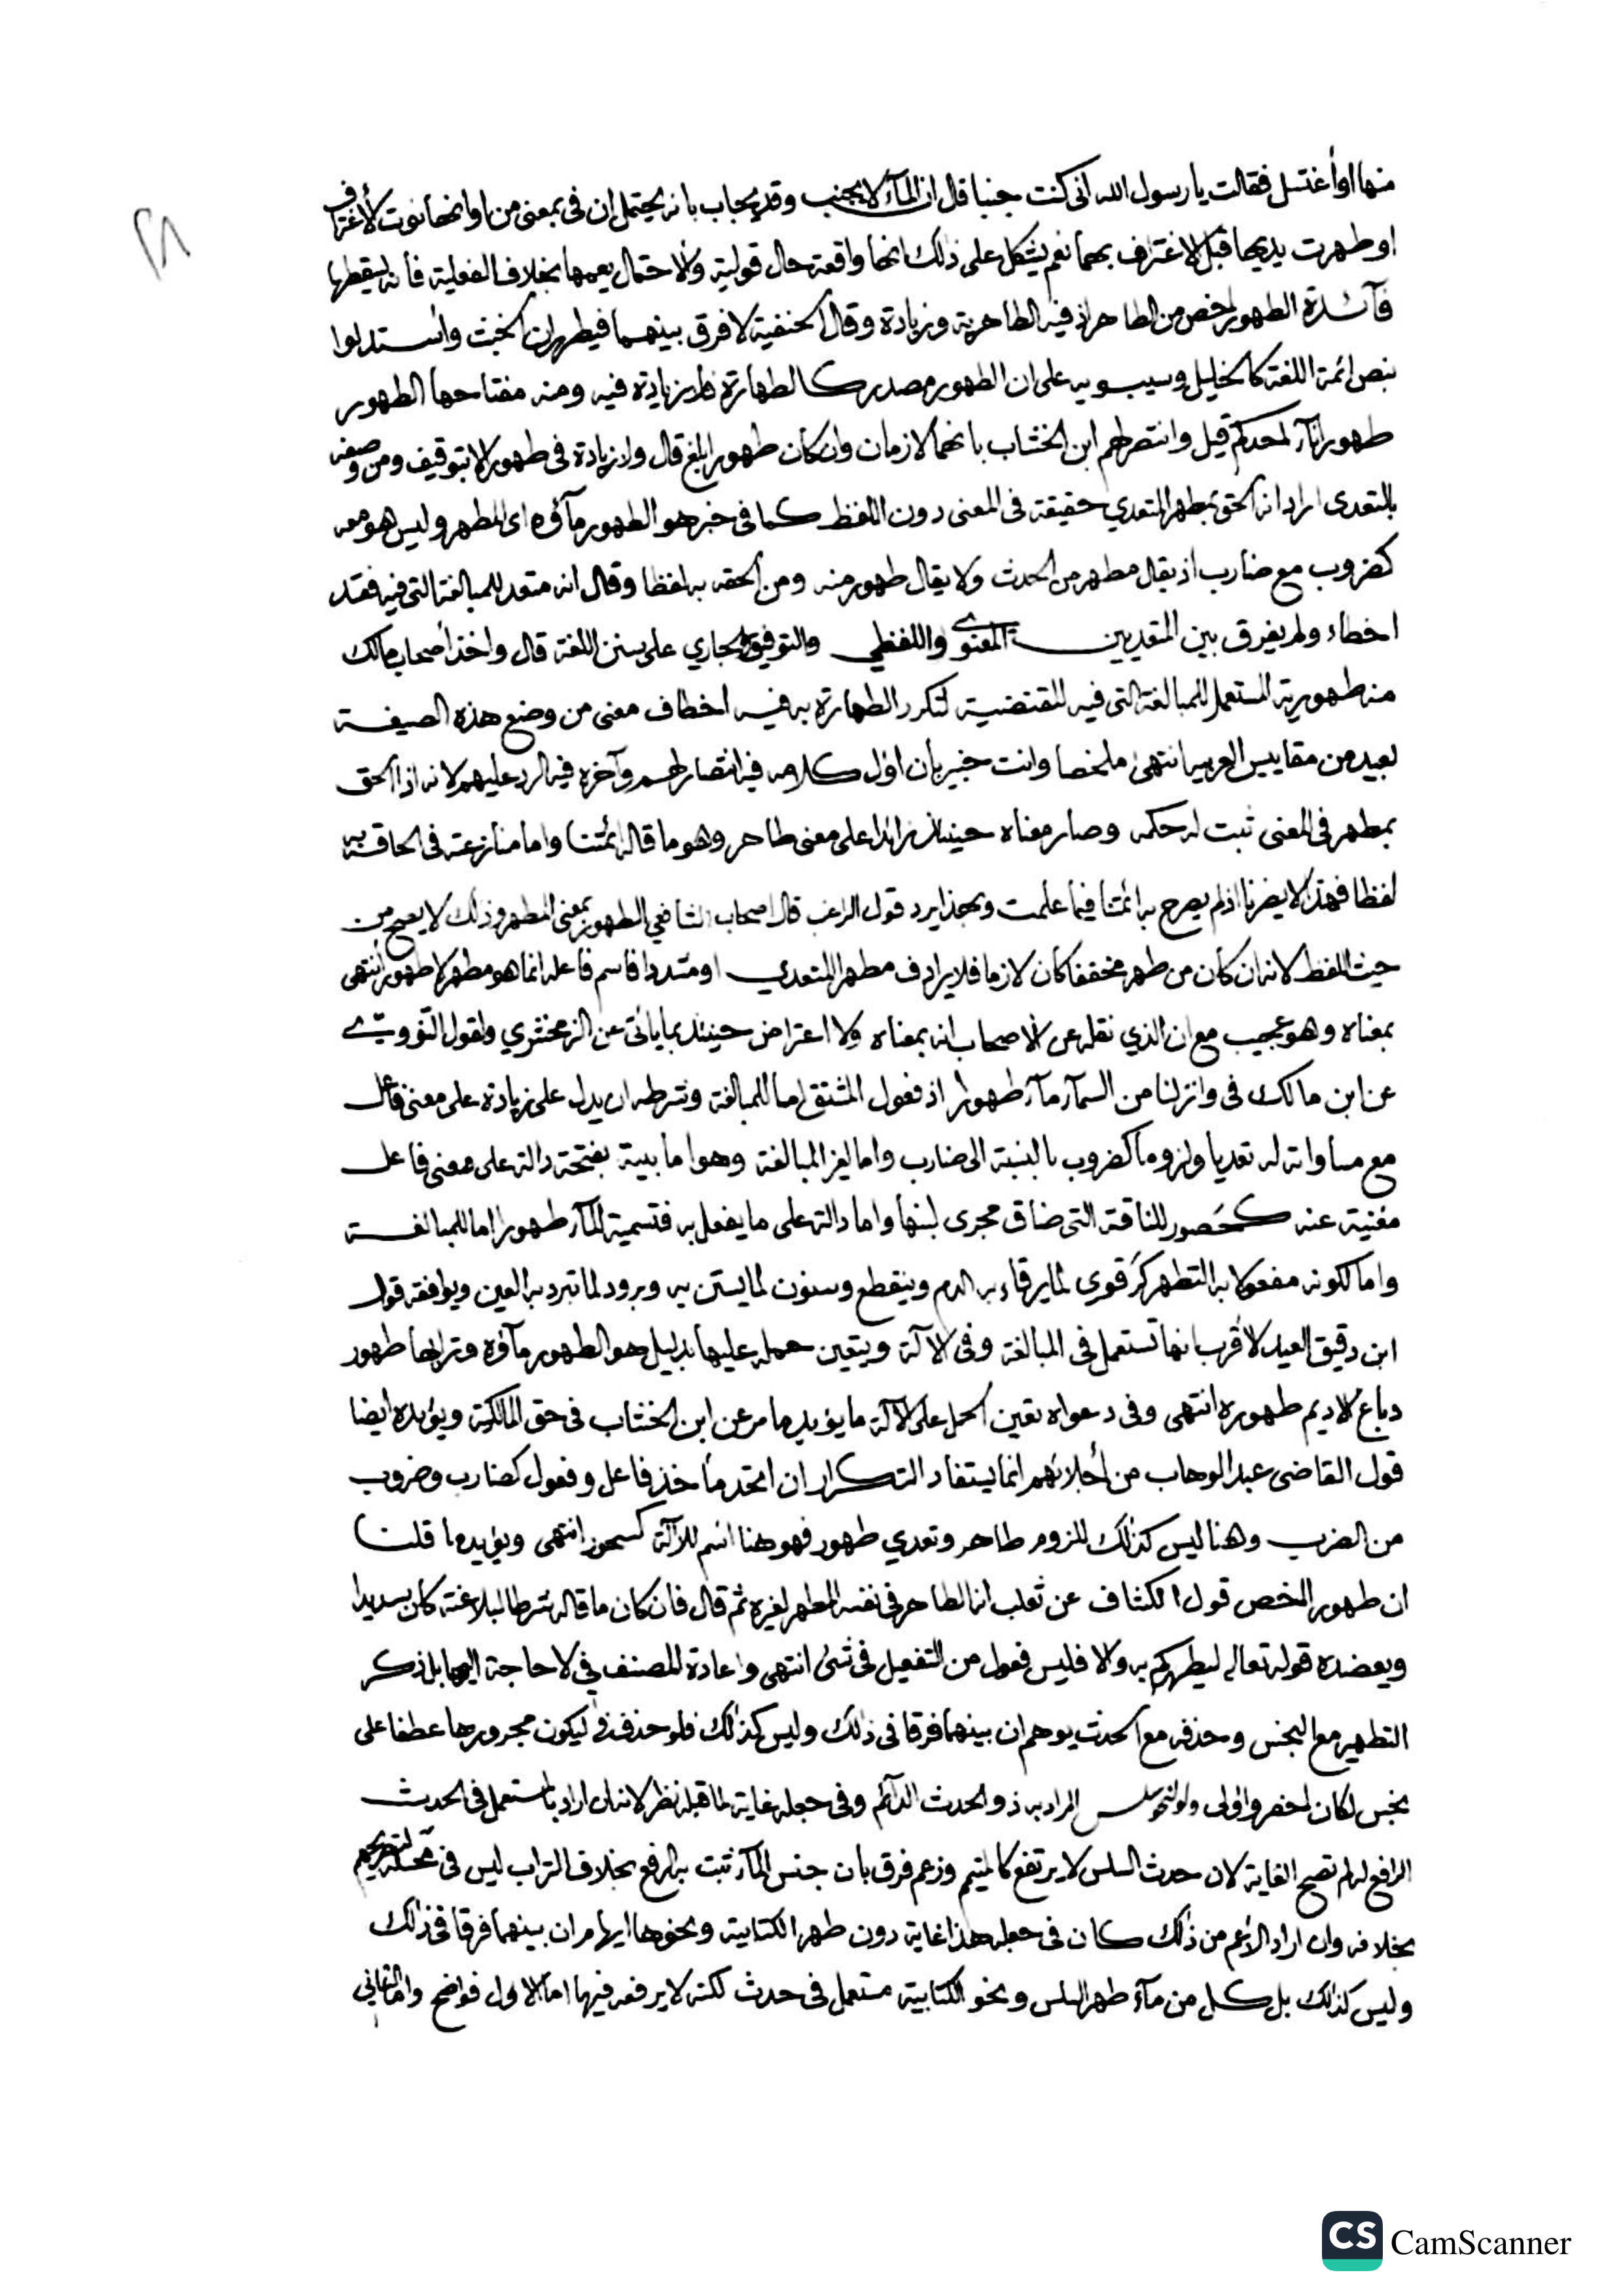 منها او أغتسل فقالت يا رسول الله اني كنت جنبا قال ان المآء لا يجنب وقد يجاب بانه يحتمل ان في بمعنى من او انها نوت الأغتراف
او طهرت يديها قبل الاغتراف بهما نعم يشكل على ذلك انها واقعة حال قولية والاحتمال يعمها بخلاف الفعلية فانه يسقطها
فآئدة الطهور اخص من الطاهر اذ فيه الطاهرية وزيادة وقال الحنفية لا فرق بينهما فيطهران الخبث وأستدلوا
بنص ائمة اللغة كالخليل وسيبويه على ان الطهور مصدر كالطهارة فلا زيادة فيه ومنه مفتاحها الطهور
طهور انآء احدكم قيل وانتصر لهم ابن الخشاب بانهما لازمان وان كان طهور ابلغ قال ولا زيادة في طهور الا بتوقيف ومن وصفه
بالتعدى اراد انه الحق بطهر المتعدي حقيقة في المعنى دون اللفظ كما في خبر هو الطهور مآؤه اى المطهر وليس هو معه
كضروب مع ضارب اذ يقال مطهر من الحدث ولا يقال طهور منه ومن الحقه به لفظا وقال انه متعد للمبالغة التي فيه فقد
اخطاء ولم يفرق بين المتعديين المعنوي واللفظي والتوفيق الجاري على سنن اللغة قال واخذ أصحاب مالك
منه طهورية المستعمل للمبالغة التي فيه المقتضية لتكرر الطهارة به فيه اخطاف معنى من وضع هذه الصيغة
بعيد من مقاييس العربية انتهى ملخصا وانت خبير بان اول كلامه فيه انتصار لهم وآخره فيه الرد عليهم لانه اذا الحق
بمطهر في المعنى ثبت له حكمه وصار معناه حينئذ زائدا على معنى طاهر وهو ما قاله أئمتنا واما منازعته في الحاقه به
لفظا فهذا لا يضرنا اذ لم يصرح به ائمتنا فيما علمت وبهذا يرد قول الراغب قال اصحاب الشافعي الطهور بمعنى المطهر وذلك لا يصح من
حيث اللفظ لانه ان كان من طهر مخففا كان لازما فلا يرادف مطهر المتعدي او مشددا فاسم فاعله انما هو مطهر لا طهور انتهى
بمعناه وهو عجيب مع ان الذي نقله عن الأصحاب انه بمعناه ولا اعتراض حينئذ بما يأتى عن الزمخشري ولقول النووي
عن ابن مالك في وانزلنا من السمآء مآء طهورا اذ فعول المشتق اما للمبالغة وشرطه ان يدل على زيادة على معنى فاعل
مع مساواته له تعديا ولزوما كضروب بالنسبة الى ضارب واما لغير المبالغة وهو اما بنية بفتحة دالة على معنى فاعل
مغنية عنه كحَصور للناقة التي ضاق مجرى لبنها واما دالة على ما يفعل به فتسمية المآء طهورا اما للمبالغة
واما لكونه مفعولا به التطهر كرَقوي لما يرقاء به الدم وينقطع وسنون لما يستن به وبرود لما تبرد به العين ويوافقه قول
ابن دقيق العيد الاقرب انها تستعمل في المبالغة وفي الآلة ويتعين حمله عليها بدليل هو الطهور مآؤه وترابها طهور
دباغ الاديم طهوره انتهى وفي دعواه تعين الحمل على الآلة ما يؤيد ما مر عن ابن الخشاب في حق المالكية ويؤيده ايضا
قول القاضى عبد الوهاب من أجلائهم انما يستفاد التكرار ان اتحد مأخذ فاعل وفعول كضارب وضروب
من الضرب وهنا ليس كذلك للزوم طاهر وتعدي طهور فهو هنا اسم للآلة كسحور انتهى ويؤيد ما قلنا
ان طهور الخص قول الكشاف عن ثعلب انه الطاهر في نفسه المطهر لغيره ثم قال فان كان ما قاله شرطا لبلاغته كان سديدا
ويعضده قوله تعالى ليطهركم به والا فليس فعول من التفعيل في شئ انتهى واعادة المصنف في لا حاجة اليها بل ذكر
التطهير مع النجس وحذفه مع الحدث يوهم ان بينهما فرقا في ذلك وليس كذلك فلو حذف في ليكون مجرورها عطفا على
نجس لكان اخصر واولى ولو لنحو سلس المراد به ذو الحدث الدآئم وفي جعله غاية لما قبله نظر لانه ان اراد بالمستعمل في الحدث
الرافع له لم تصح الغاية لان حدث السلس لا يرتفع كالمتيمم وزعم فرق بان جنس المآء ثبت به الرفع بخلاف التراب ليس في محله لتصريحهم
بخلافه وان اراد الأعم من ذلك كان في جعله هذا غاية دون طهر الكتابية ونحوها ايهام ان بينهما فرقا في ذلك
وليس كذلك بل كل من مآء طهر السلس ونحو الكتابية مستعمل في حدث لكنه لا يرفعه فيها اما الاول فواضح واما الثاني
CS CamScanner